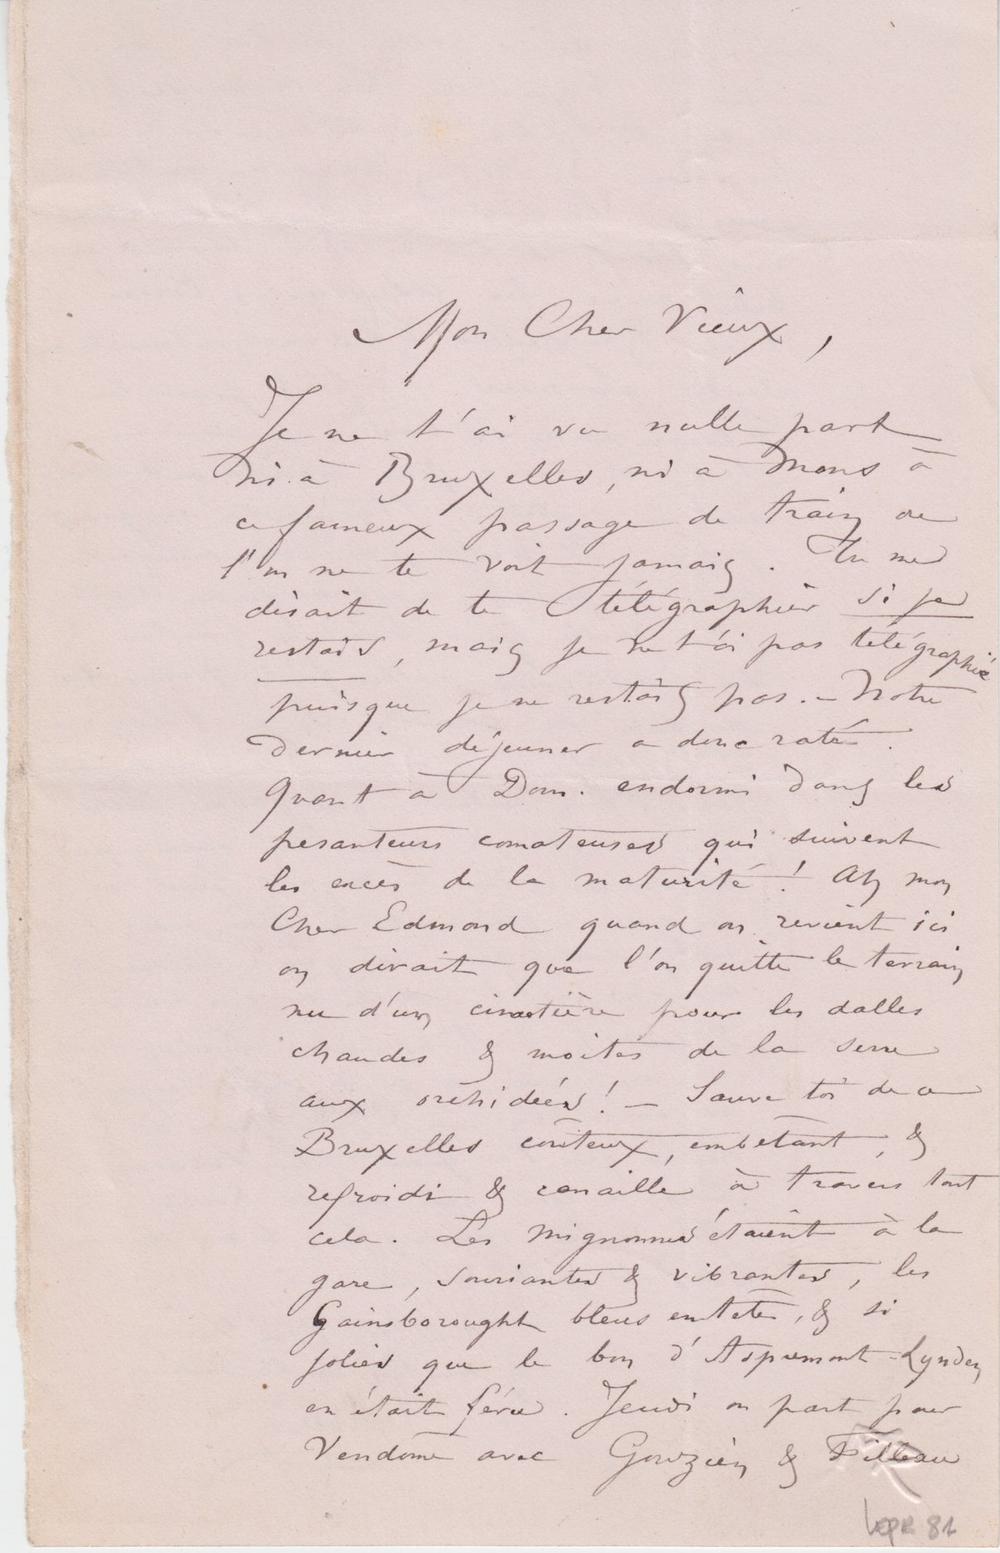 Mon Cher Vieux,
Je ne t'ai vu nulle part
ni à Bruxelles, ni à Mons à
ce fameux passage de train où
l'on ne te voit jamais. Tu me
disait de te télégraphier si je
restais, mais je ne t'ai pas télégraphié
puisque je ne restais pas. – Notre
dernier déjeuner a donc raté.
Quant à Dom. endormi dans les
pesanteurs comateuses qui suivent
les excès de la maturité! Ah mon
Cher Edmond quand on revient ici
on dirait que l'on quitte le terrain
nu d'un cimetière pour les dalles
chaudes & moites de la serre
aux orchidées! – Sauve toi de ce
Bruxelles coûteux, embêtant, &
refroidi & canaille à travers tout
cela. Les mignonnes étaient à la
gare, souriantes & vibrantes, les
Gainsborought bleus en tête, & si
jolies que le bon d'Aspremont-Lynden
en était féru. Jeudi on part pour
Vendôme avec Gouzien & Filleau
LEPR 81